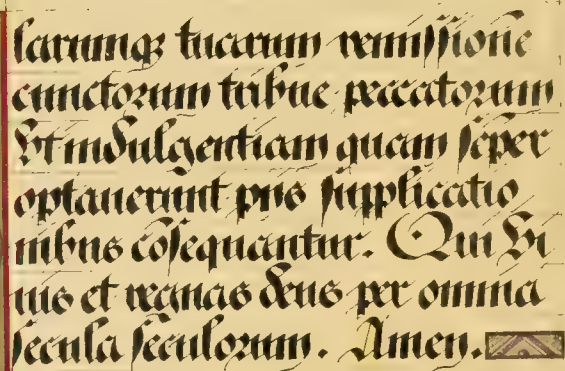 larumqꝫ tuarum remissionē
cunctorum tribue peccatorum
Vt indulgentiam quam sēper
optauerunt piis supplicatio
nibus cōsequantur. Qui vi
uis et regnas deus per omnia
secula seculorum. Amen.